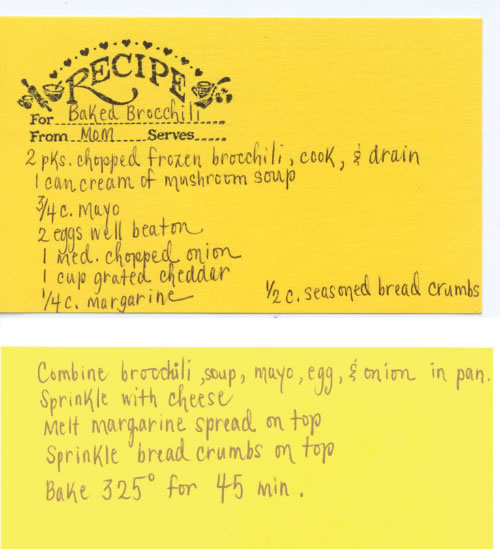 RECIPE
For Baked Brocchili
From Mom Serves
2 pks. chopped frozen brocchili, cook, & drain
1 can cream of mushroom soup
3/4 c. mayo
2 eggs well beaton
1 med. chopped onion
1 cup grated cheddar
1/4 c. margarine 1/2 c. seasoned bread crumbs
Combine brocchili, soup, mayo, egg, & onion in pan.
Sprinkle with cheese
Melt margarine spread on top
Sprinkle bread crumbs on top
Bake 325° for 45 min.